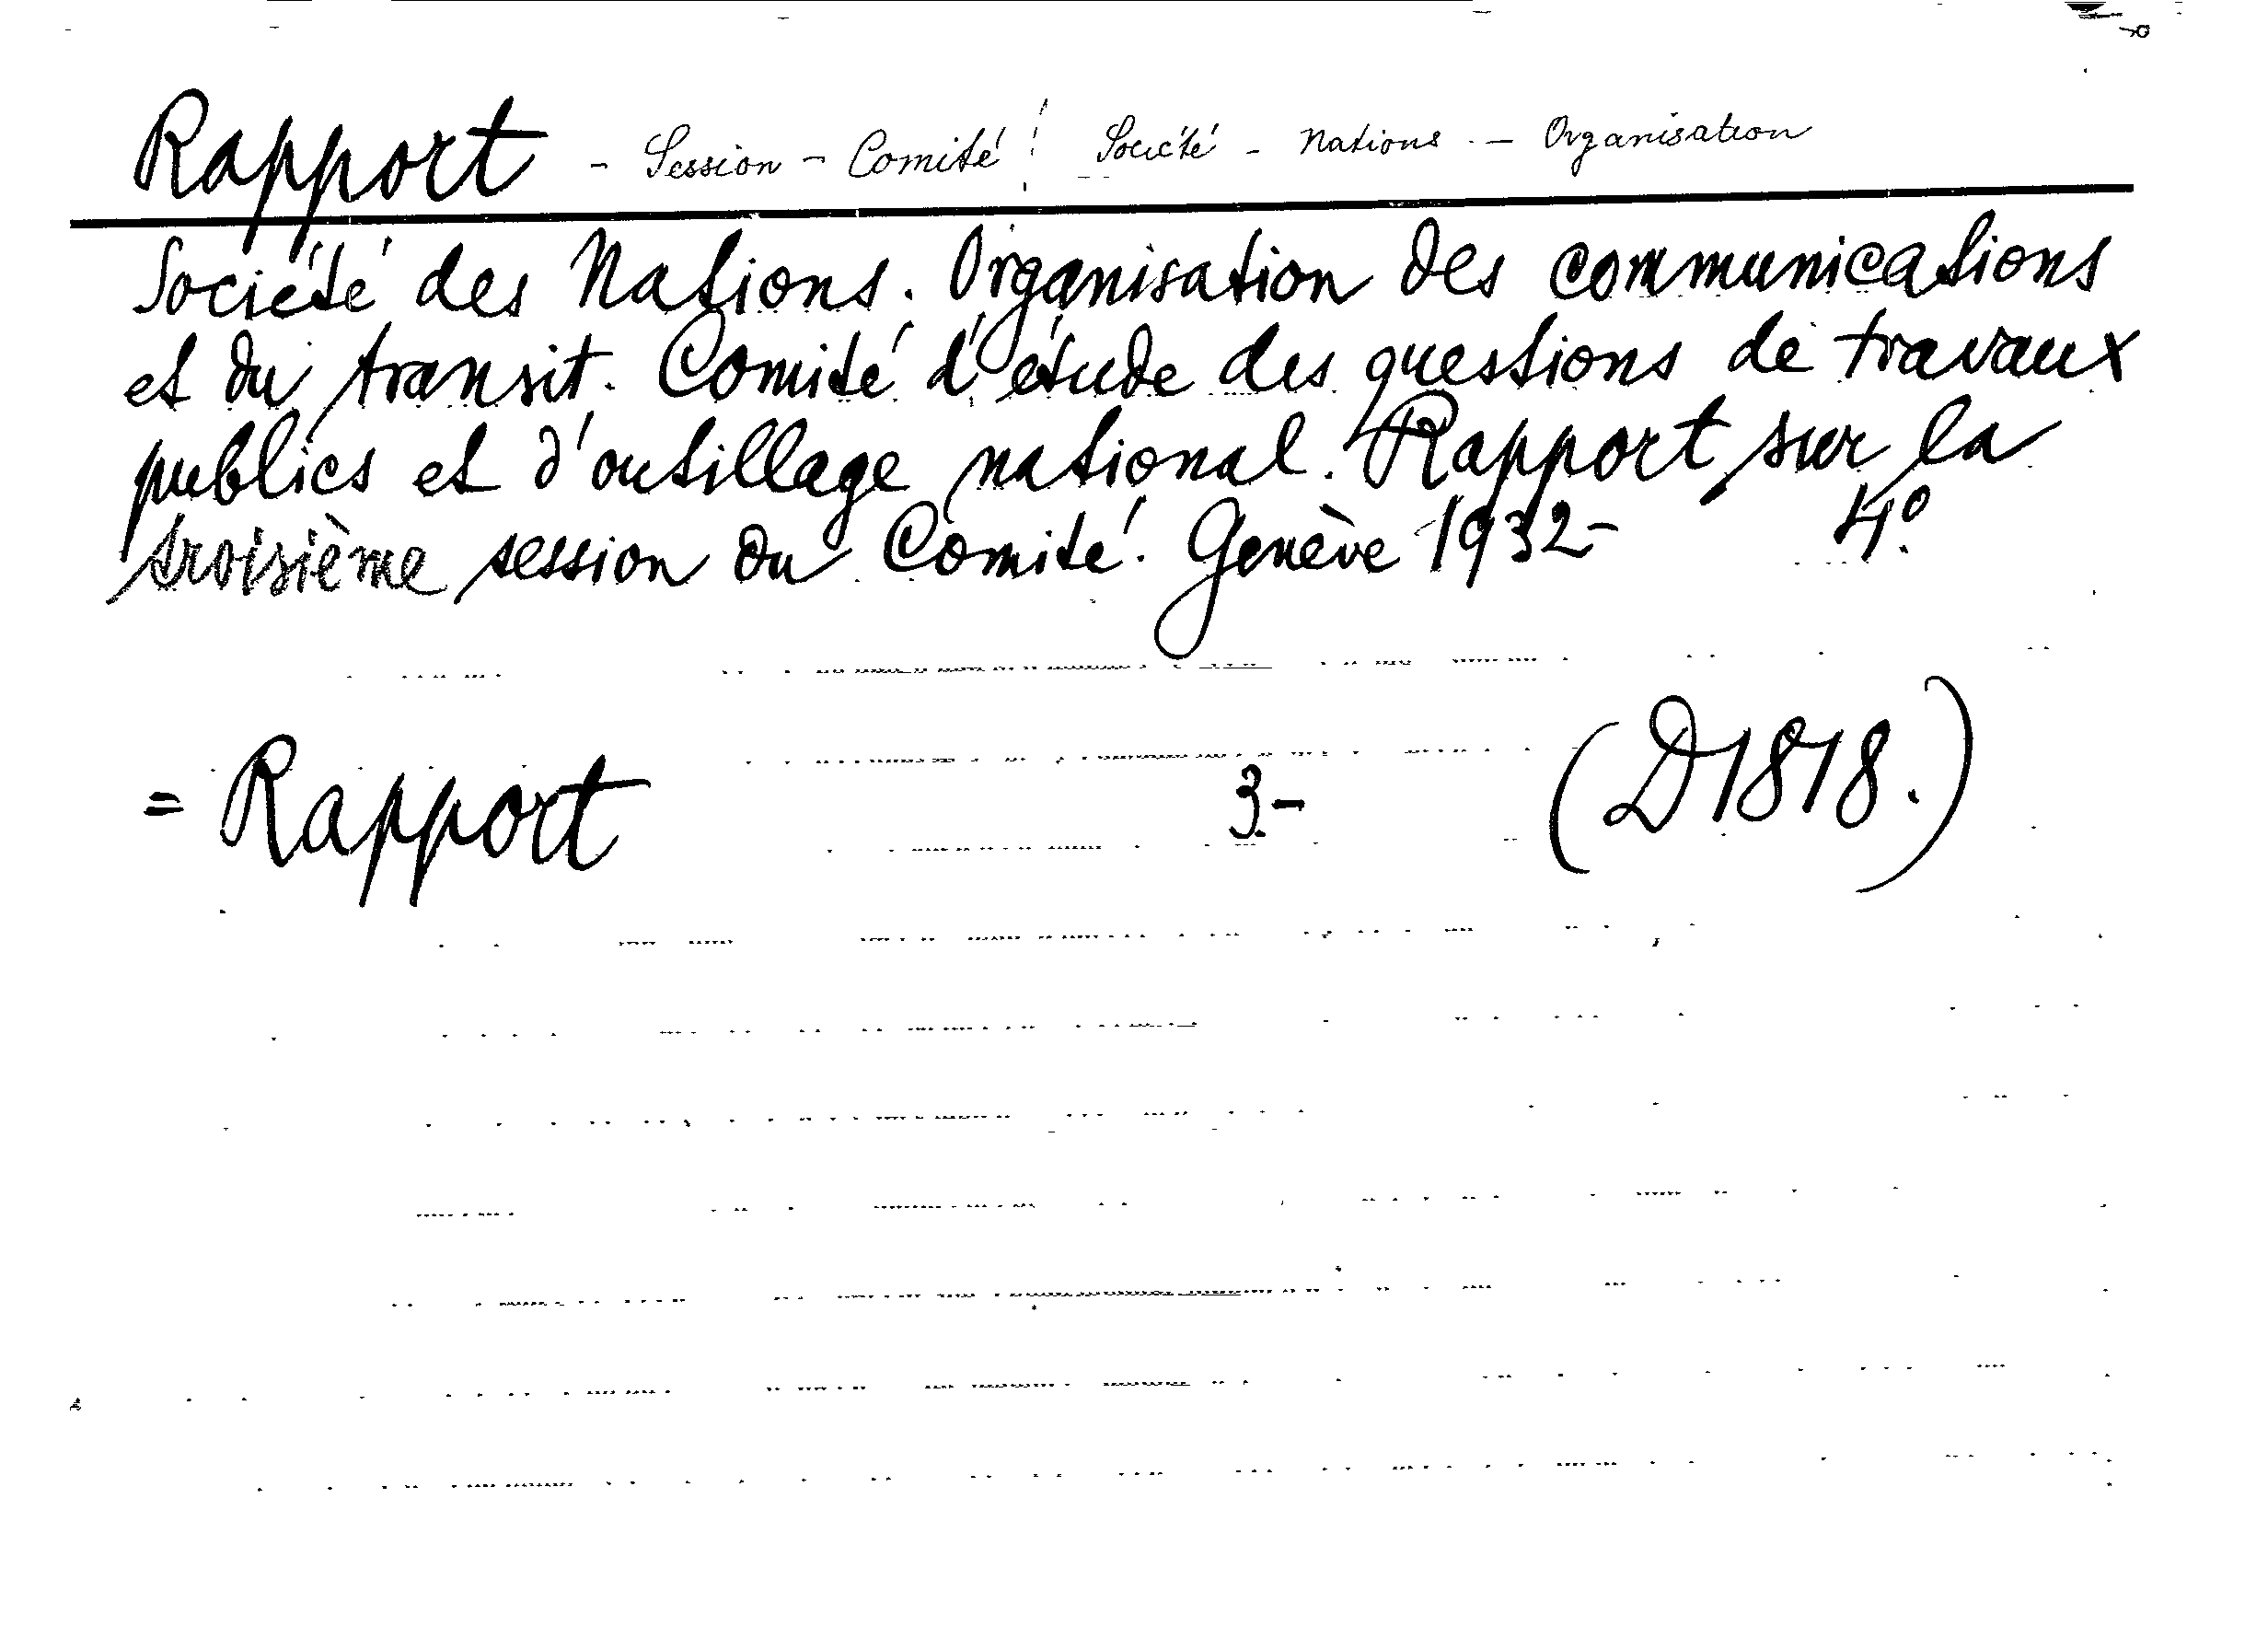 Rapport - Session - Comité : Société - Nations - Organisation
Société des Nations. Organisation des communications
et du transit. Comité d'étude des questions de travaux
publics et d'outillage national. Rapport sur la
troisième session du Comité. Genève 1932- 4º.
= Rapport 3- (D1818.)